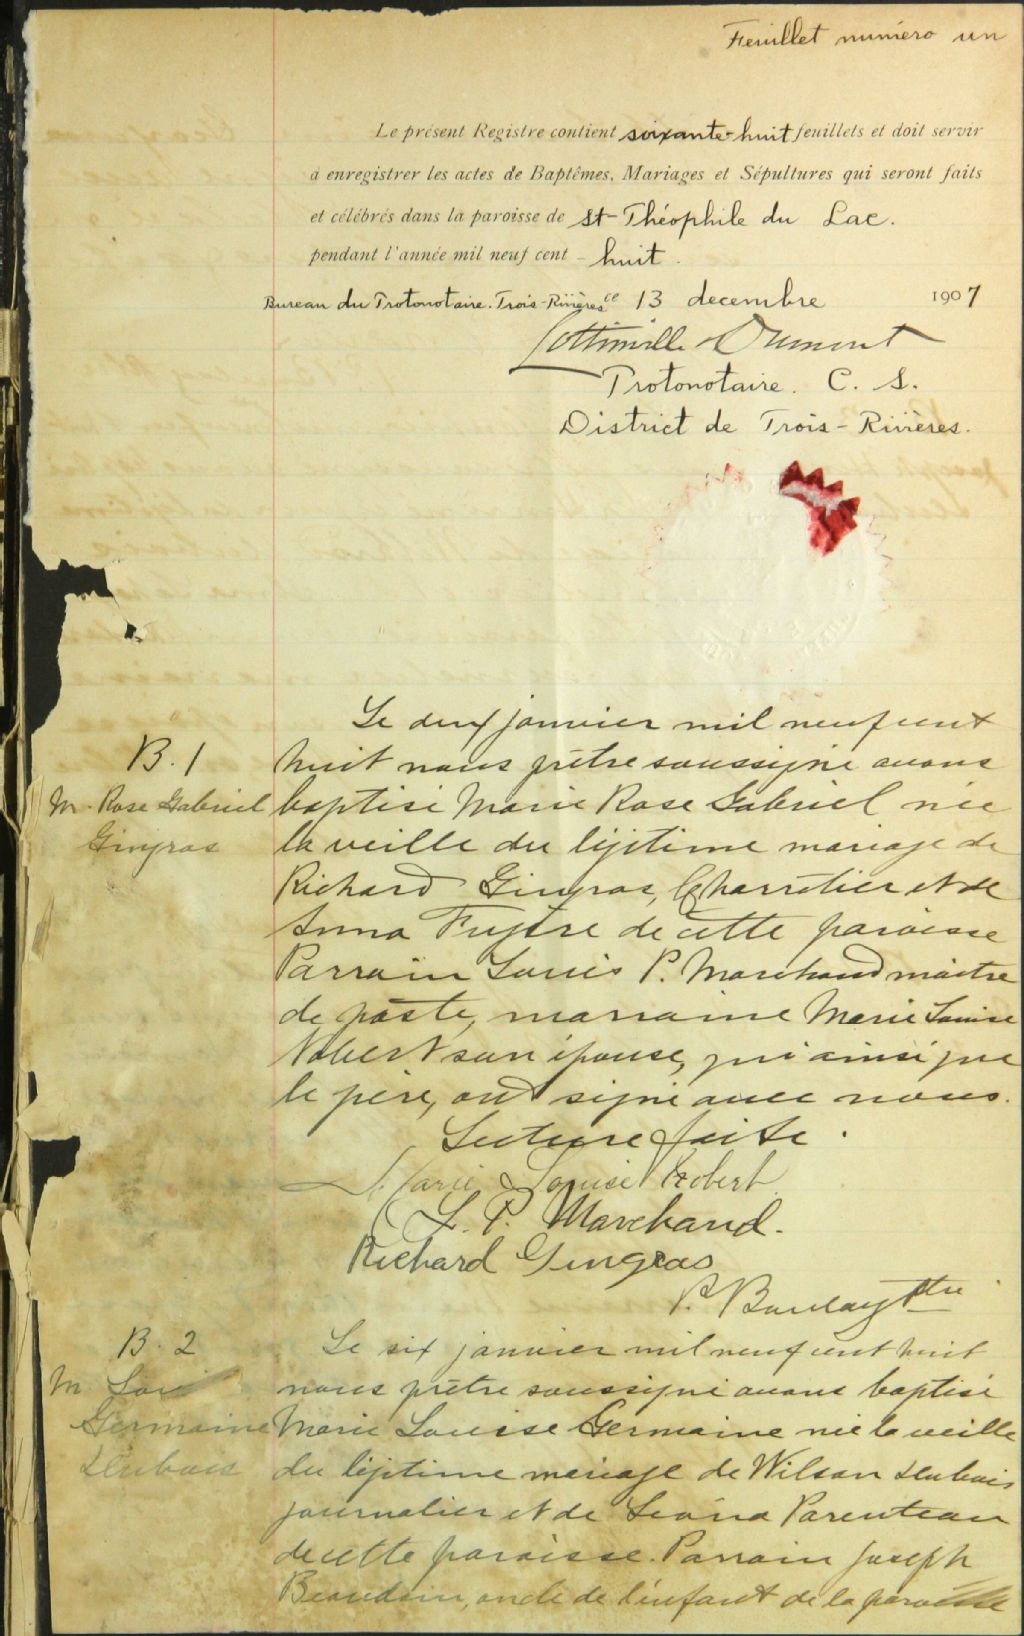 Feuillet numéro un
Le présent Registre contient soixante-huit feuillets et doit servir
à enregistrer les actes de Baptêmes, Mariages et Sépultures qui seront faits
et célébrés dans la paroisse de St-Théophile du Lac.
pendant l'année mil neuf cent - huit.
Bureau du Protonotaire. Trois-Rivières ce 13 decembre 1907
Lottinville & Dumont
Protonotaire. C. S.
District de Trois-Rivières.
Le deux janvier mil neuf cent
B. 1
huit nous prêtre soussigné avons
M. Rose Gabriel
baptisé Marie Rose Gabriel née
Gingras
la veille du légitime mariage de
Richard Gingras, Charretier et de
Anna Frigère de cette paroisse
Parrain Louis P. Marchand maître
de poste, marraine Marie Louise
son épouse, qui ainsi que
le père, ont signé avec nous.
Lecture faite.
Marie Louise Robert
L. P. Marchand.
Richard Gingras
P. Boulay Ptre
B. 2
Le six janvier mil neuf cent huit
M
nous prêtre soussigné avons baptisé
Germaine
Marie Louise Germaine née la veille
Dubois
du légitime mariage de Wilson Dubois
journalier et de Léona Parenteau
de cette paroisse. Parrain Joseph
Beaudoin, oncle de l'enfant de la paroisse